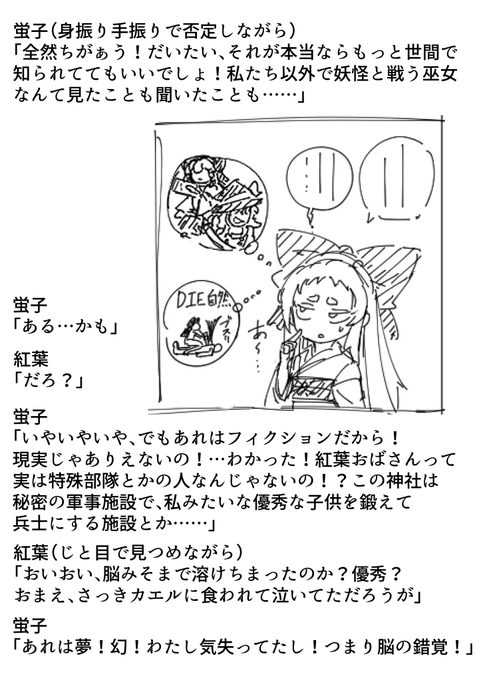 蛍子(身振り手振りで否定しながら)
「全然ちがぁう!だいたい、それが本当ならもっと世間で
知られててもいいでしょ!私たち以外で妖怪と戦う巫女
なんて見たことも聞いたことも……」
DIE自然
ブスリ
あ〜…
蛍子
「ある…かも」
紅葉
「だろ?」
蛍子
「いやいやいや、でもあれはフィクションだから!
現実じゃありえないの!…わかった!紅葉おばさんって
実は特殊部隊とかの人なんじゃないの!?この神社は
秘密の軍事施設で、私みたいな優秀な子供を鍛えて
兵士にする施設とか……」
紅葉(じと目で見つめながら)
「おいおい、脳みそまで溶けちまったのか?優秀?
おまえ、さっきカエルに食われて泣いてただろうが」
蛍子
「あれは夢!幻!わたし気失ってたし!つまり脳の錯覚!」